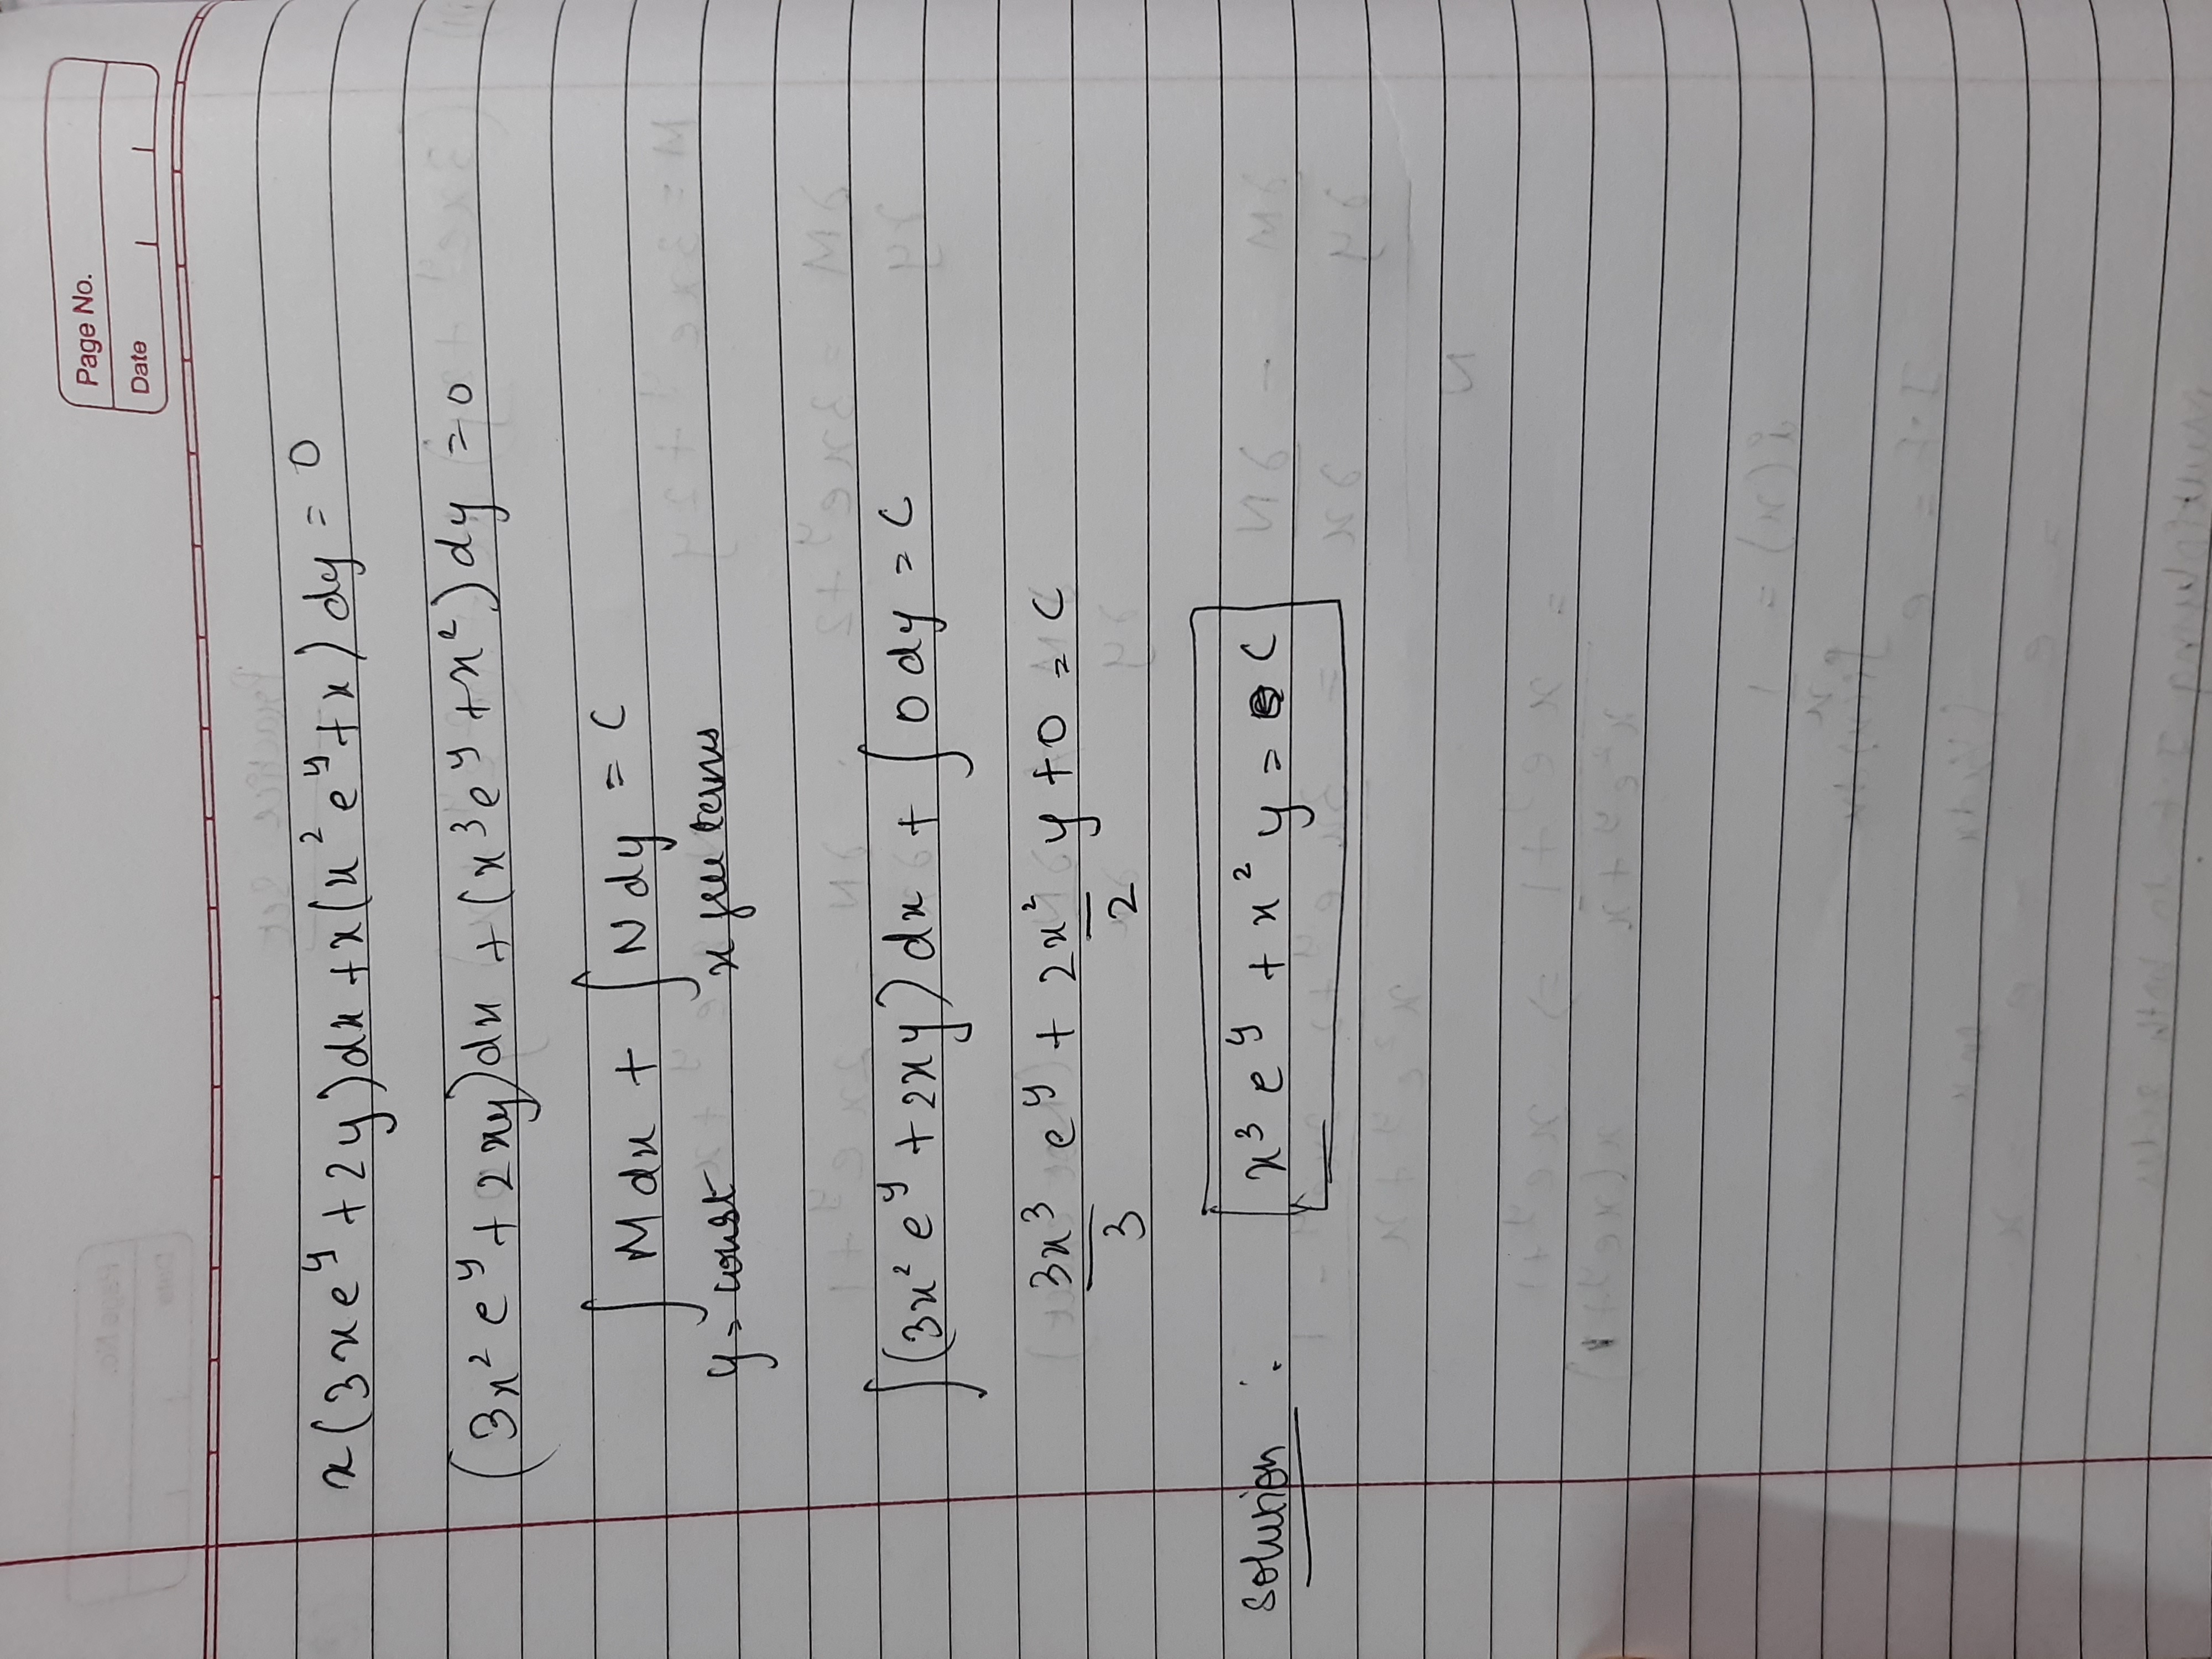 Page No.
Date
x(3xe^y + 2y)dx + x(x^2 e^y + x) dy = 0
(3x^2 e^y + 2xy)dx + (x^3 e^y + x^2) dy = 0
∫ M dx + ∫ N dy = C
y = const x free terms
∫(3x^2 e^y + 2xy) dx + ∫ 0 dy = C
3x^3/3 e^y + 2x^2/2 y + 0 = C
Solution : x^3 e^y + x^2 y = C